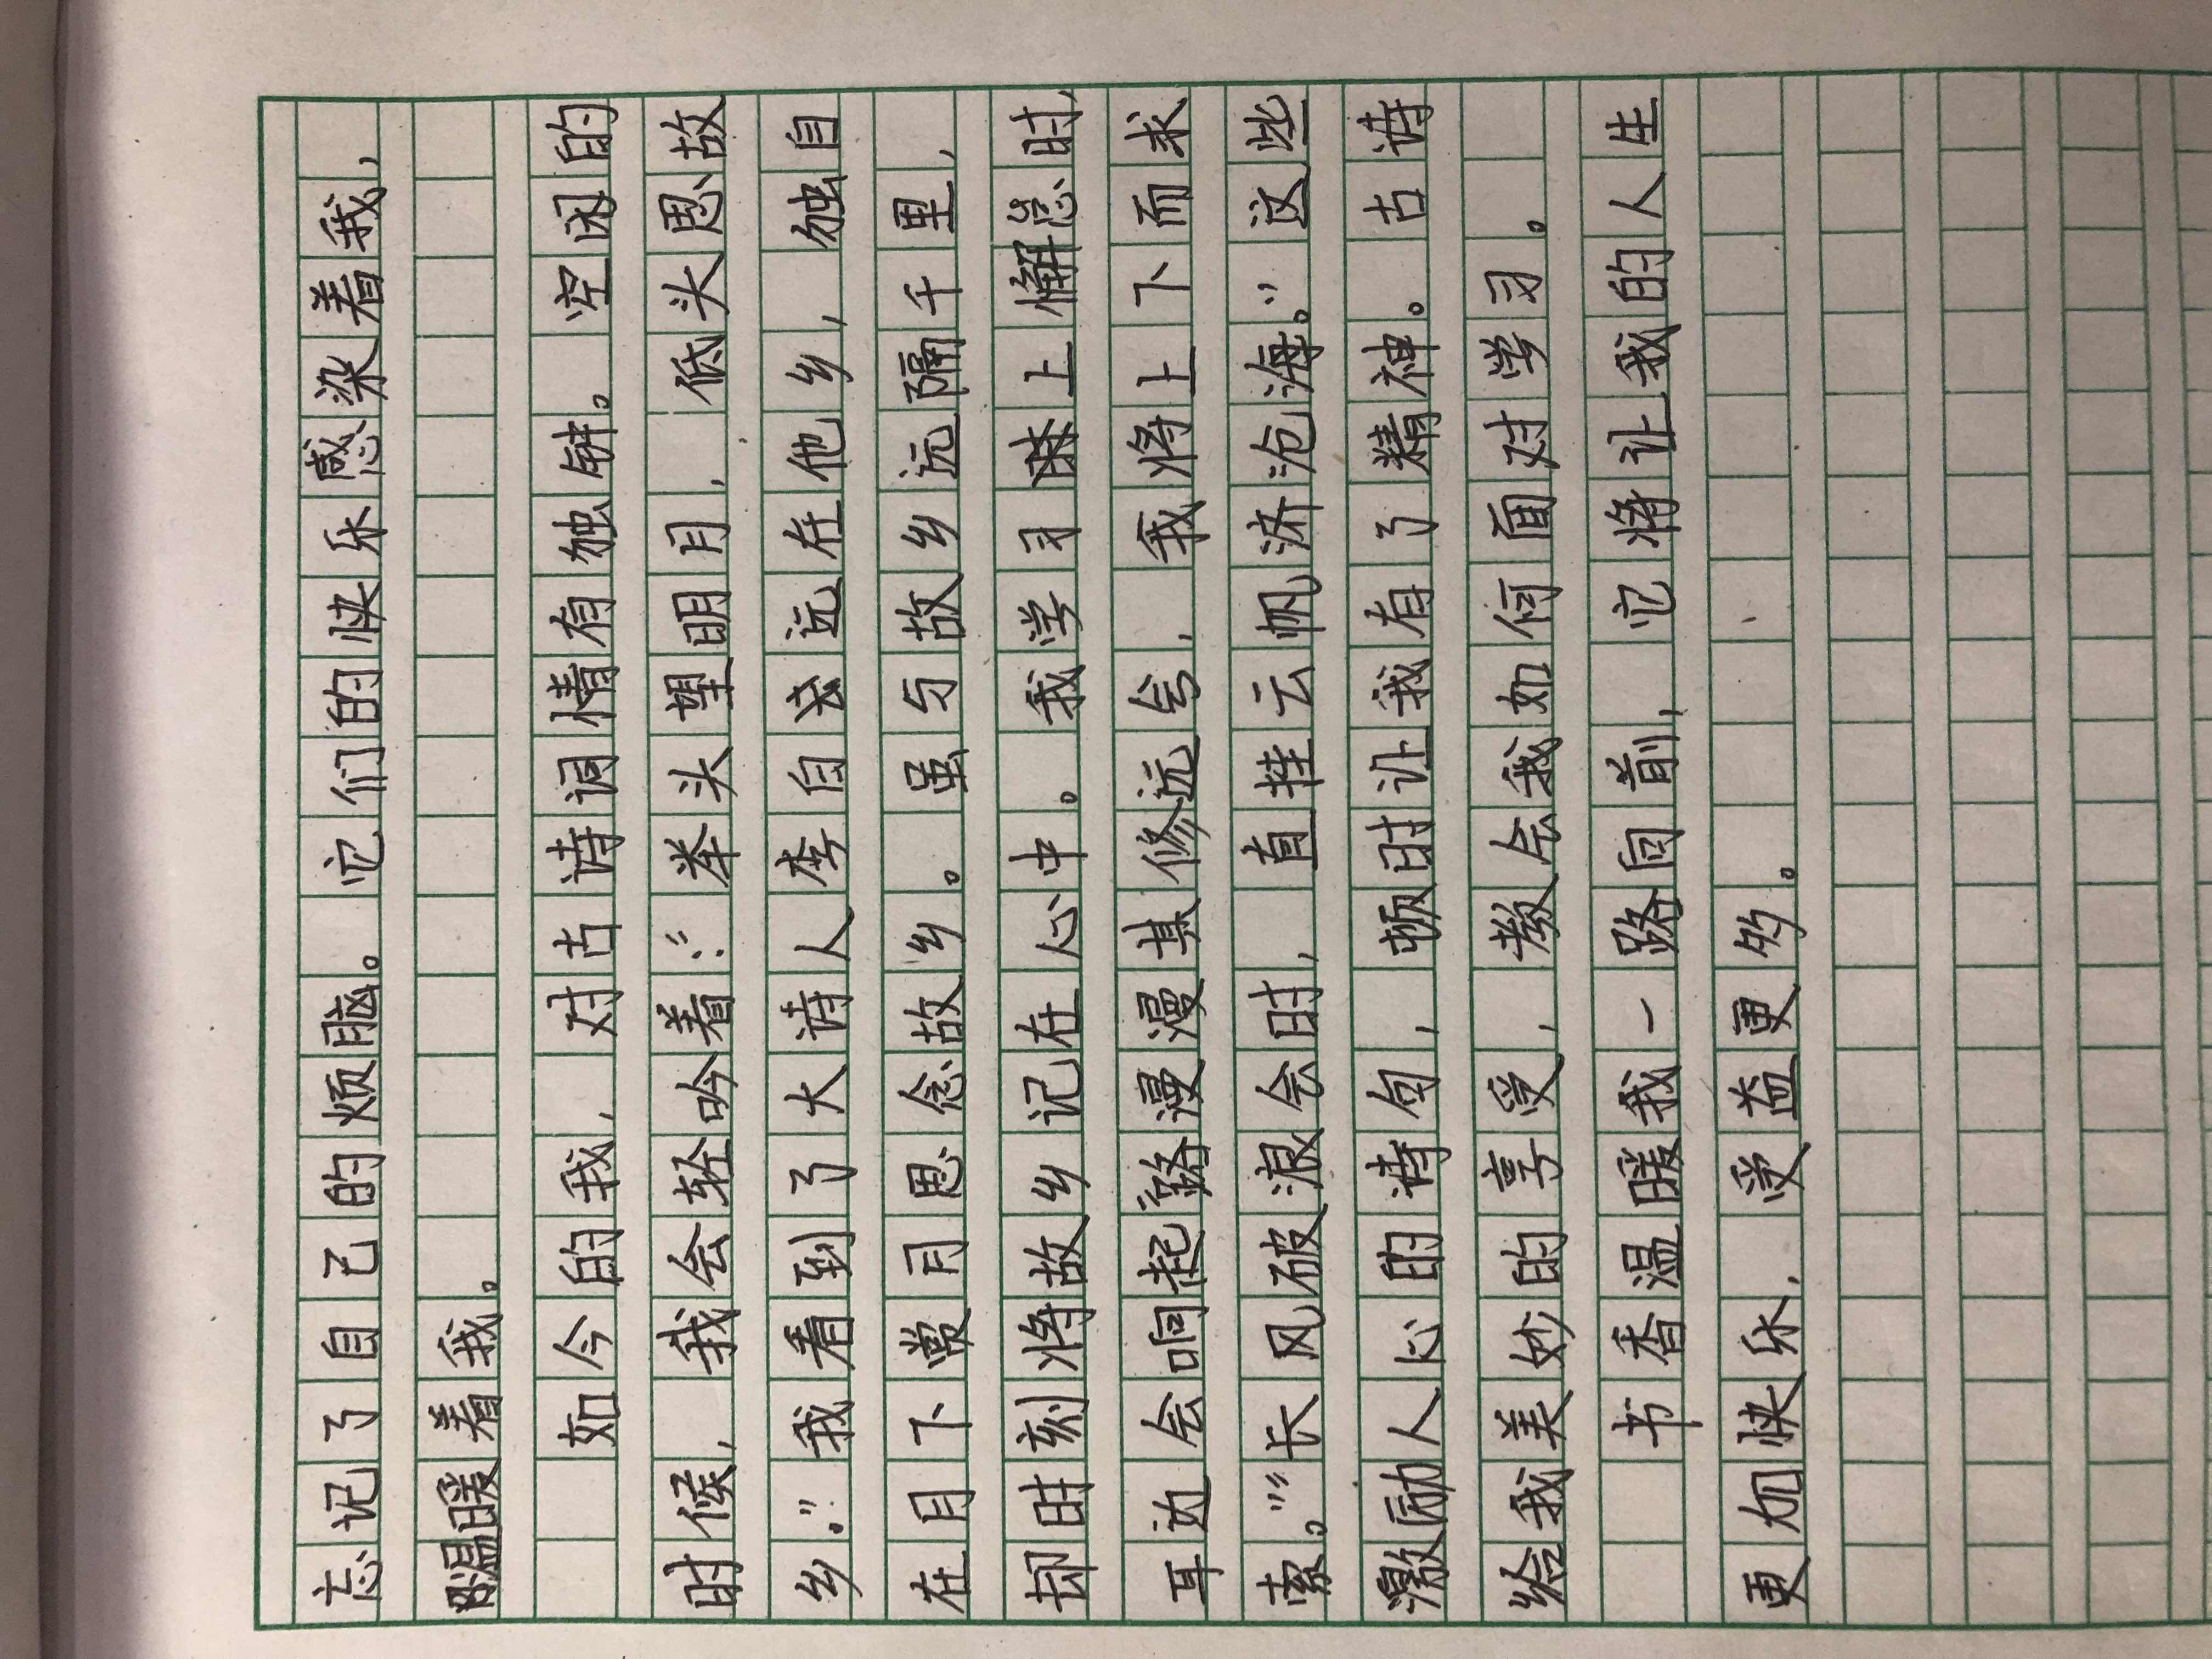 忘记了自己的烦脑。它们的快乐感染着我，
温暖着我。
如今的我，对古诗词情有独钟。空闲的
时候，我会轻吟着：“举头望明月，低头思故
乡。”我看到了大诗人李白远在他乡，独自
在月下常月思念故乡。虽与故乡远隔千里，
却时刻将故乡记在心中。我学习上懈怠时，
耳边会响起路漫漫其修远兮，我将上下而求
索。”“长风破浪会时，直挂云帆济沧海。”这些
激励人心的诗句，顿时让我有了精神。古诗
给我美妙的享受，教会我如何面对学习。
书香温暖我一路向前，它将让我的人生
更加快乐，受益更多。